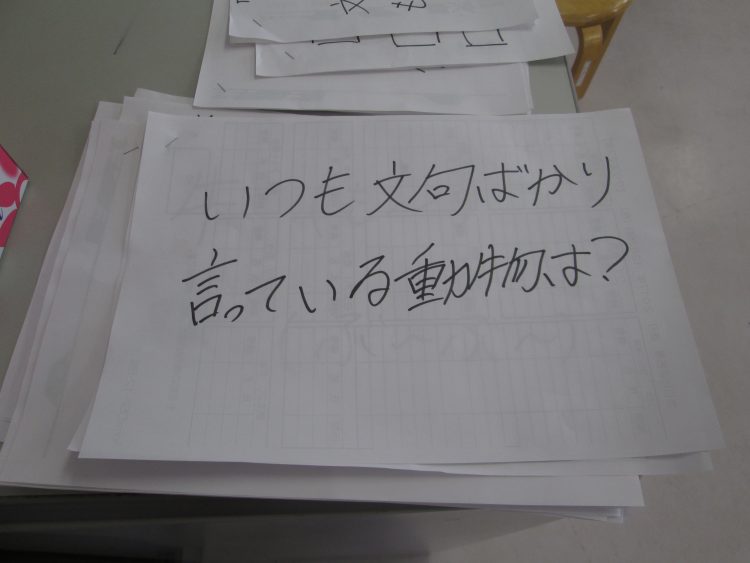 いつも文句ばかり
言っている動物は?